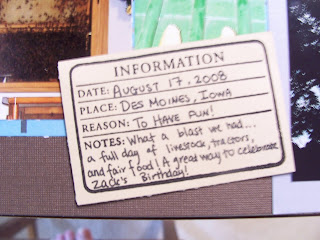 INFORMATION
DATE: AUGUST 17, 2008
PLACE: DES MOINES, IOWA
REASON: TO HAVE FUN!
NOTES: What a blast we had...
a full day of livestock, tractors,
and fair food! A great way to celebrate
Zack's Birthday!